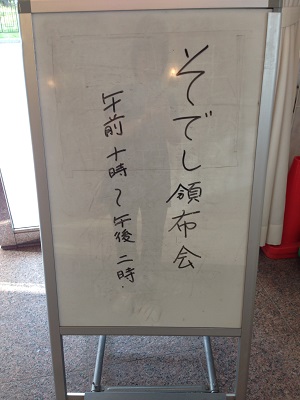 そでし頒布会
午前十時～午後二時